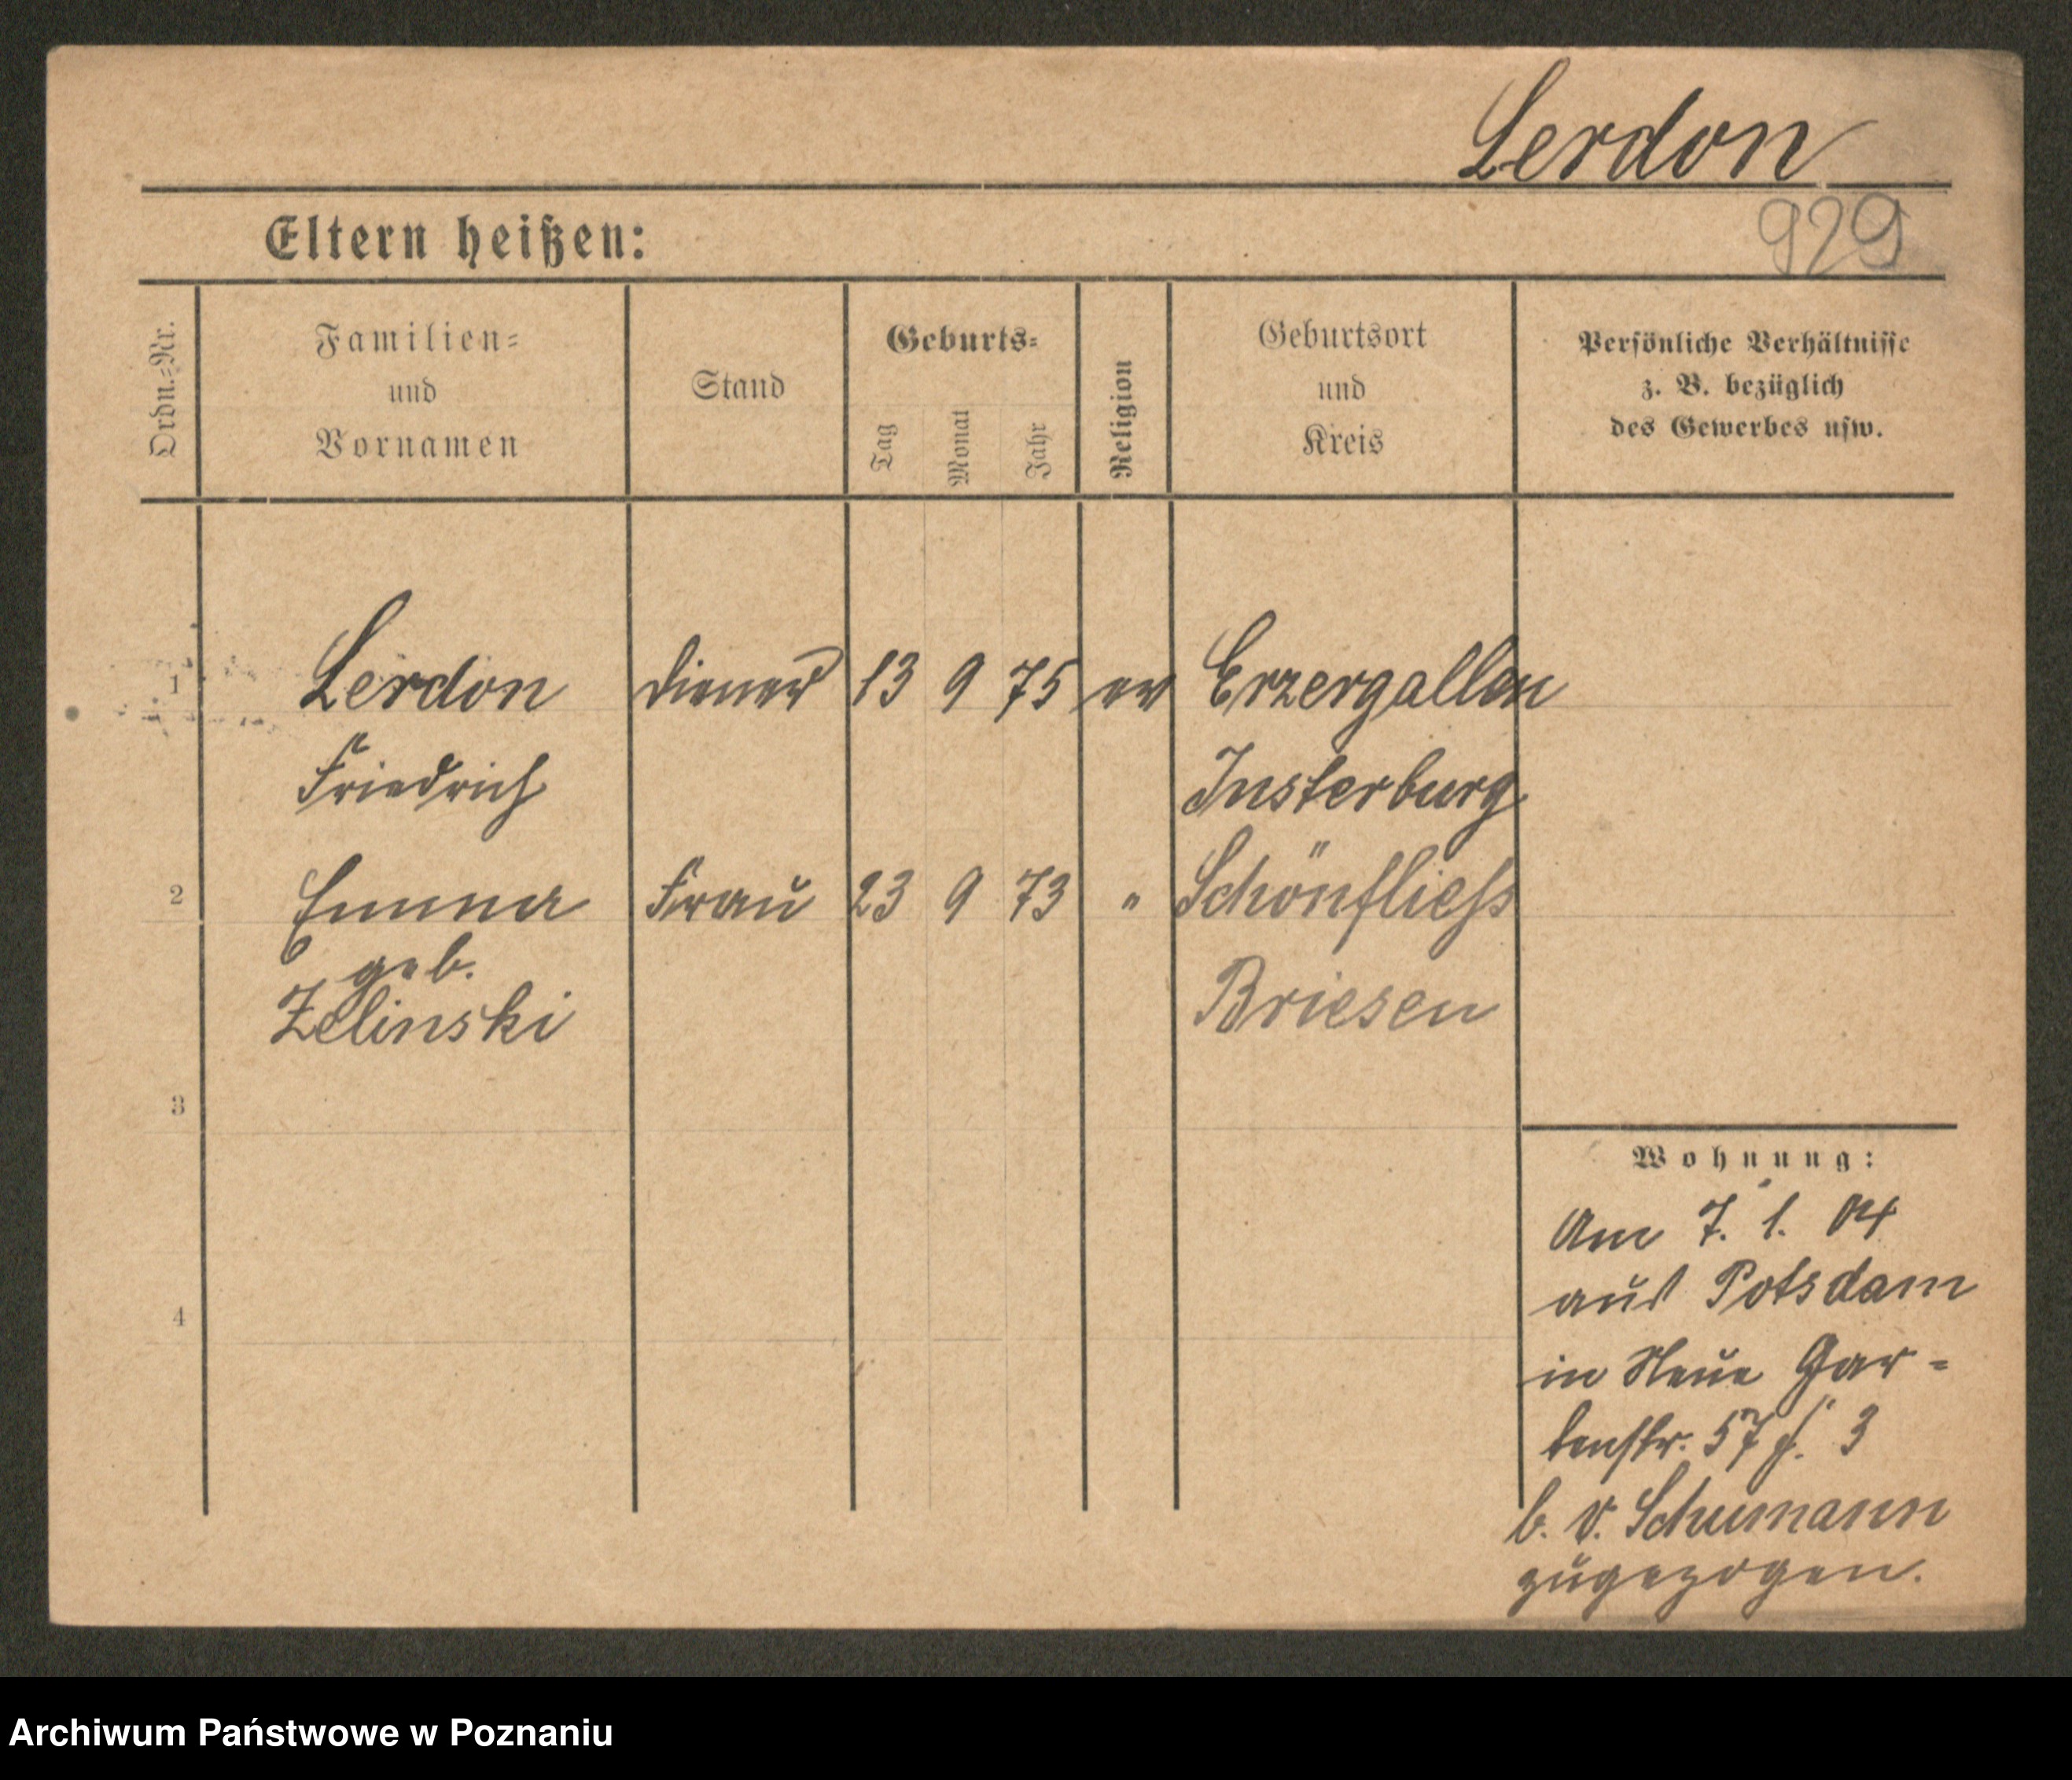 Lerdon
929
Eltern heißen:
Ordn.=Nr.
Familien=
und
Vornamen
Stand
Geburts=
Tag
Monat
Jahr
Religion
Geburtsort
und
Kreis
Persönliche Verhältnisse
z. B. bezüglich
des Gewerbes usw.
1 Lerdon Diener 13 9 75 ev Erzergallen
Friedrich Insterburg
2 Emma Frau 23 9 73 " Schönfliess
geb.
Zelinski Briesen
3
4
Wohnung:
Am 7. 1. 04
aus Potsdam
in Neue Gar=
tenstr. 57 3
b. v. Schumann
zugezogen.
Archiwum Państwowe w Poznaniu